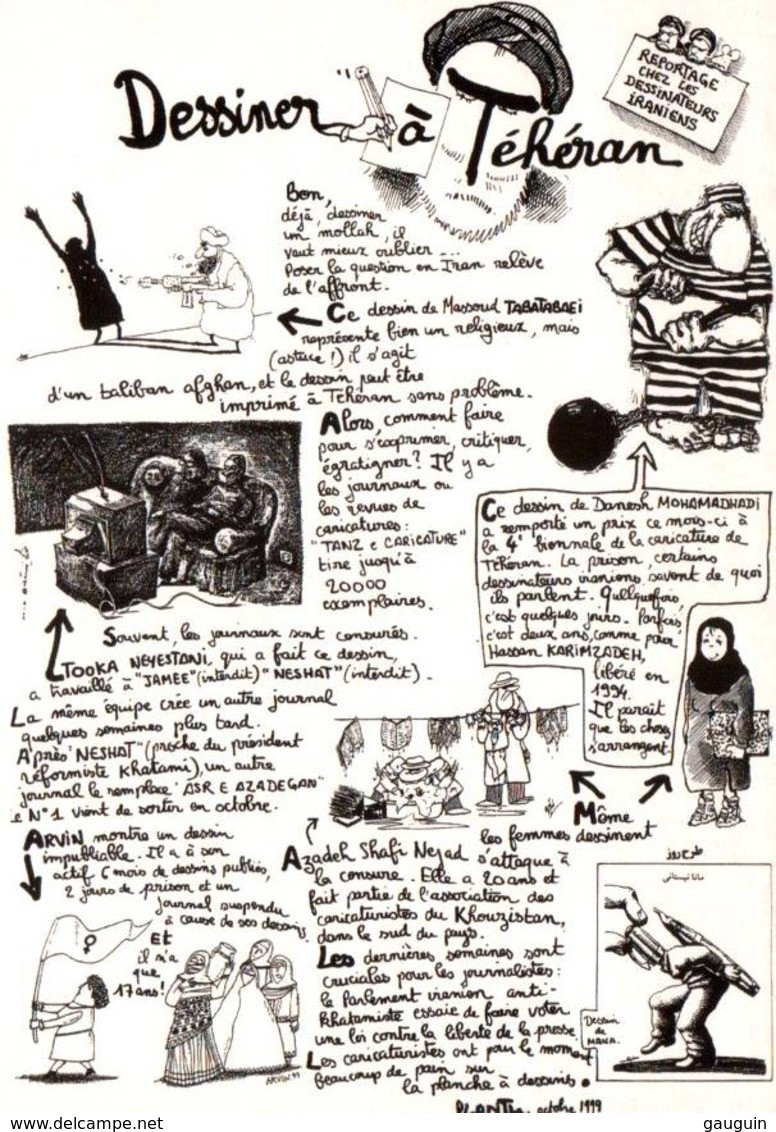 Dessiner à Téhéran
REPORTAGE
CHEZ LES
DESSINATEURS
IRANIENS
Bon,
déjà, dessiner
un mollah, il
vaut mieux oublier...
Poser la question en Iran relève
de l'affront.
Ce dessin de Massoud TABATABAEI
représente bien un religieux, mais
(astuce !) il s'agit
d'un taliban afghan, et le dessin peut être
imprimé à Téhéran sans problème.
Alors, comment faire
pour s'exprimer, critiquer,
égratigner ? Il y a
les journaux ou
les revues de
caricatures :
"TANZ e CARICATURE"
tire jusqu'à
20000
exemplaires.
Ce dessin de Danesh MOHAMADHADI
a remporté un prix ce mois-ci à
la 4e biennale de la caricature de
Téhéran. La prison, certains
dessinateurs iraniens savent de quoi
ils parlent. Quelquefois,
c'est quelques jours. Parfois,
c'est deux ans, comme pour
Hassan KARIMZADEH,
libéré en
1994.
Il paraît
que les choses
s'arrangent.
Souvent, les journaux sont censurés.
TOOKA NEYESTANI, qui a fait ce dessin,
a travaillé à "JAMEE" (interdit) "NESHAT" (interdit).
La même équipe crée un autre journal
quelques semaines plus tard.
Après "NESHAT" (proche du président
réformiste Khatami), un autre
journal le remplace "ASR E AZADEGAN"
Le N°1 vient de sortir en octobre.
Même
les femmes dessinent
ARVIN montre un dessin
impubliable. Il a à son
actif 6 mois de dessins publiés,
2 jours de prison et un
journal suspendu
à cause de ses dessins.
Et
il n'a
que
17 ans !
ARVIN.99
Azadeh Shafi Nejad s'attaque à
la censure. Elle a 20 ans et
fait partie de l'association des
caricaturistes du Khouzistan,
dans le sud du pays.
Les dernières semaines sont
cruciales pour les journalistes :
le Parlement iranien anti-
khatamiste essaie de faire voter
une loi contre la liberté de la presse.
Les caricaturistes ont pour le moment
beaucoup de pain sur
la planche à dessins.
طرح روز
مانا نیستانی
Dessin
de
MANA.
PLANTU, octobre 1999
www.delcampe.net
gauguin